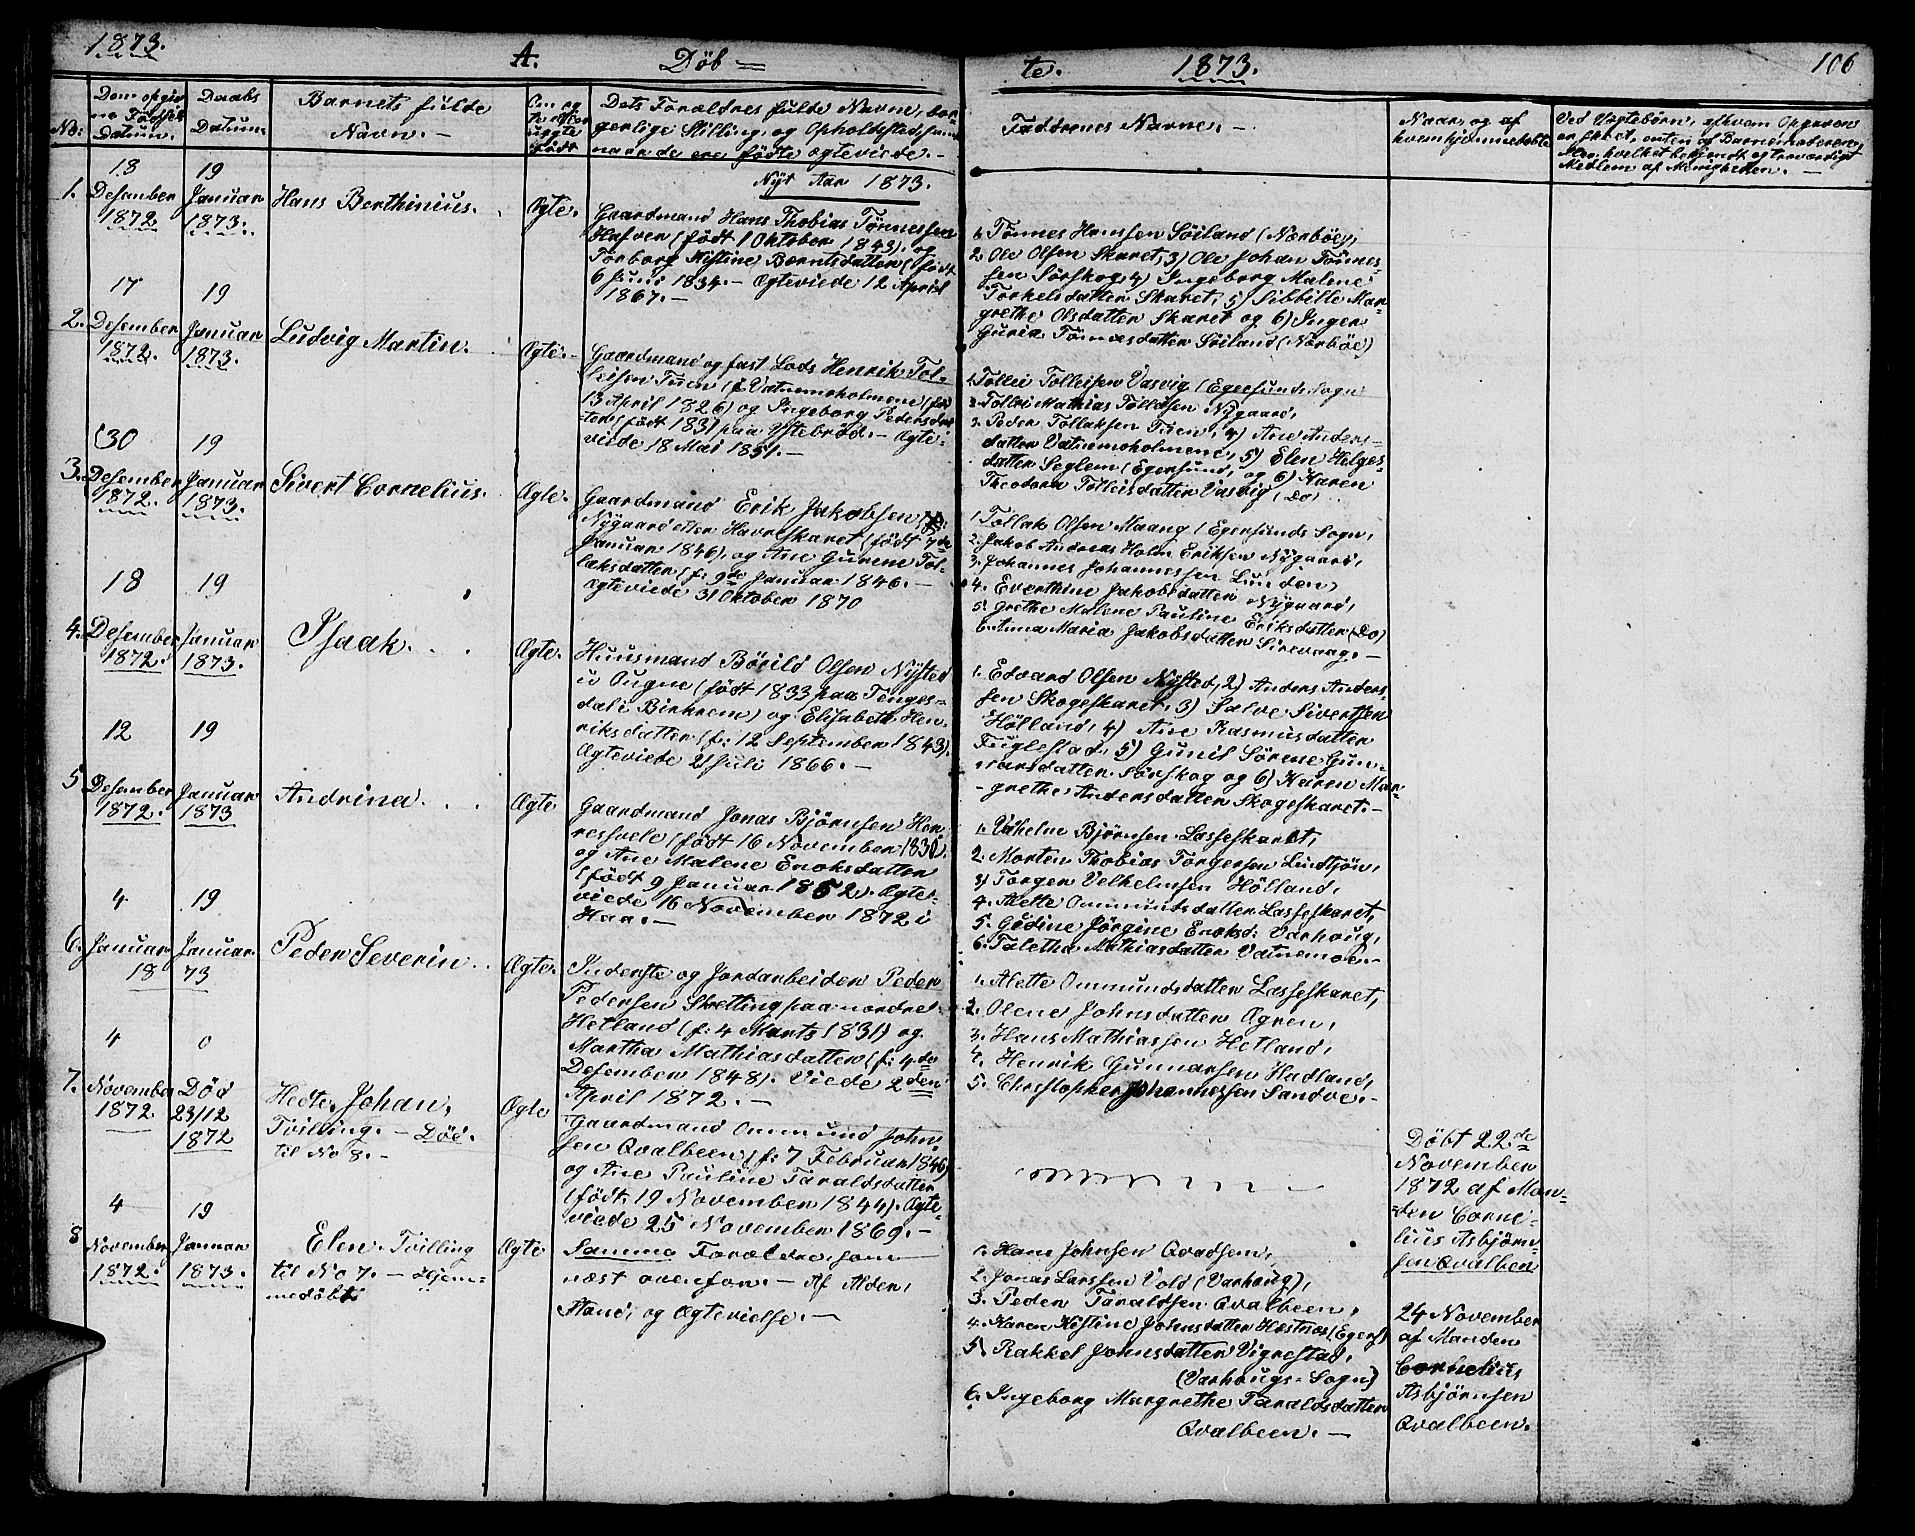 1873. A. Døb = te. 1873. 106
No:
Dem opgiv
ne Fødsels
Datum.
Daabs
Datum.
Barnets fulde
Navn. —
Om og
Dets Forældres fulde Navne, bor-
gerlige Stilling, og Opholdsted, samt
naar de ere fødte ogteviede. —
Faddrenes Navne. —
Naar, og af
hvem hjemmedøbt.
Ved Uægtebørn, efhvem Opgaven
er skeet, enten af Barnemoderen,
Medlem af Menigheden. —
Nyt Aar 1873.
1.
13
Desember
1872
19
Januar
1873.
Hans Berthinius.
Ægte.
Gaardmand Hans Thobias Tønnessen
Hafven (født 1 Oktober 1843), og
Torborg Kistine Berntsdatter (født
6 Juni 1834. — Ægteviede 12 April
1867. —
1. Tønnes Hansen Søiland (Nærbøe),
2. Ole Olsen Skaret, 3) Ole Johan Tønnes-
sen Sørskog, 4) Ingeborg Malene
Torkelsdatter Skaret, 5) Sibbille Mar-
grethe Olsdatter Skaret og 6) Inger
Guria Tønnesdatter Søiland (Nærbøe)
2.
17
Desember
1872.
19
Januar
1873.
Ludvig Martin.
Ægte. —
Gaardmand og fast Lods Henrik Tol-
leisen Tuen (f. Vatnemoholmene (fød
13 April 1826) og Ingeborg Pedersdat
ter (født 1831 paa Ystebrød. — Ægte-
viede 18 Mai 1851. —
1. Tollei Tolleisen Vasvig (Egersunds Sogn
2. Tollei Mathias Tolleisen Nygaard,
3. Peder Tollaksen Tuen, 4) Ane Anders-
datter Vatnemoholmene, 5) Elen Helges-
datter Seglem (Egersund, og 6) Karen
Theodora Tolleisdatter Vasvig (Do)
3.
30
Desember
1872.
19
Januar
1873.
Sivert Cornelius.
Ægte.
Gaardmand Erik Jakobsen (f:
Nygaard eller Havreskaret (født 7de
Januar 1846), og Ane Gurene Tol-
laksdatter (f: 9de Januar 1846. —
Ægteviede 31 Oktober 1870
1. Tollak Olsen Maang (Egersunds Sogn,
2. Jakob Andreas Holm Eriksen Nygaard,
3. Johannes Johannessen Lunden,
4. Everthine Jakobsdatter Nygaard,
5. Grethe Malene Pauline Eriksdatter (Do)
6. Anna Maria Jakobsdatter Sirevaag. —
4.
18
Desember
1872.
19
Januar
1873.
Isaak.
Ægte.
Huusmand Børild Olsen Nysted
u Ougne (født 1833 paa Tenges-
dal i Birkrem) og Elisabeth Hen-
riksdatter (f: 12 September 1843).
Ægteviede 2 Juli 1866. —
1. Edvard Olsen Nysted, 2) Anders Anders-
sen Skogeskaret, 3) Salve Sivertsen
Hølland, 4) Ane Rasmusdatter
Fuglestad, 5) Gunil Sørene Gun-
narsdatter Sørskog og 6) Karen Mar-
grethe Andersdatter Skogeskaret. —
5
12
Desember
1872.
19
Januar
1873
Andrina.
Ægte.
Gaardmand Jonas Bjørnsen Her-
resvele (født 16 November 1830)
og Ane Malene Enoksdatter
(født 9 Januar 1852). Ægte-
viede 16 November 1872 i
Haa. —
1. Vilhelm Bjørnsen Lasseskaret,
2. Morten Thobias Torgersen Lindtjøn,
3) Torger Velhelmsen Hølland,
4. Alette Ommundsdatter Lasseskaret,
5. Gedine Jørgine Enoksd. Varhoug,
6. Taletha Mathiasdatter Vatnemoe. —
6.
4
Januar
18
19
Januar
73
Peder Severin.
Ægte.
Inderste og Jordarbeider Peder
Pedersen Sketting paa nordre
Hetland (f: 4 Marts 1831) og
Martha Mathiasdatter (f: 4de
Desember 1848). Viede 2den
April 1872. —
1. Alette Ommundsdatter Lasseskaret,
2. Olene Johnsdatter Ogren,
3. Hans Mathiassen Hetland,
4. Henrik Gunnarsen Hadland,
5. Christopher Johannessen Sandve. —
7.
4
November
1872.
0
Død
23/12
1872
Hedte, Johan,
Tvilling. — Død.
til No 8. —
Ægte
Gaardmand Ommund John-
sen Qvalbeen (f: 7 Februar 1846)
og Ane Pauline Taraldsdatter
(født 19 November 1844). Ægte-
viede 25 November 1869. —
Døbt 22de
November
1872 af Man-
den Corne-
lius Asbjørn-
sen Qvalben
8
4
November
1872.
19
Januar
1873.
Elen. Tvilling
til No 7. — Hjem-
medøbt
Ægte
Samme Forældre som
næst ovenfor. — Af Alder,
Stand, og Ægtevielse. —
1. Hans Johnsen Qvadsem,
2. Jonas Larssen Vold (Varhoug),
3. Peder Taraldsen Qvalbeen,
4. Karen Kistine Johnsdatter Hæstnæs (Egers)
5. Rakkel Johnsdatter Vigrestad,
(Varhougs = Sogn)
6. Ingeborg Margrethe Taraldsdatter
Qvalbeen. —
24 November
af Manden
Cornelius
Asbjørnsen
Qvalbeen.